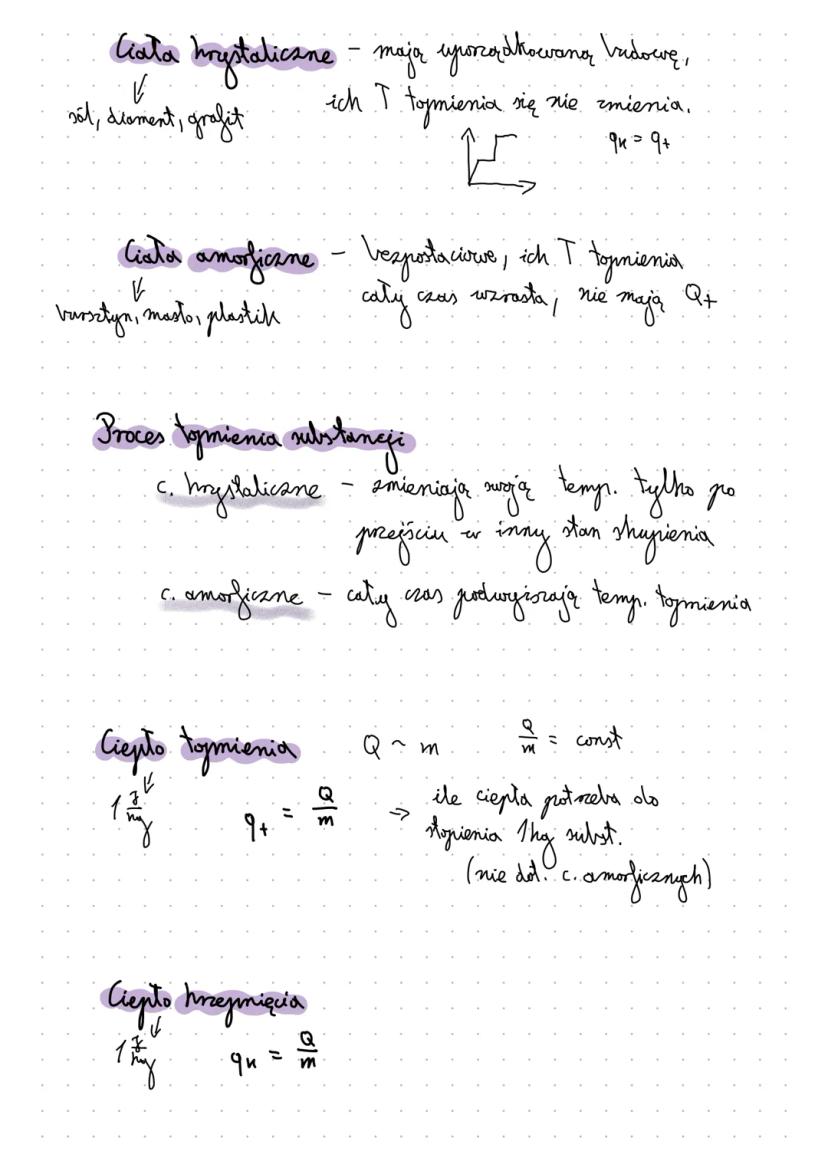 Ciała krystaliczne – mają uporządkowaną budowę,
ich T topnienia się nie zmienia.
sól, diament, grafit
qk = qt
Ciała amorficzne – bezpostaciowe, ich T topnienia
cały czas wzrasta, nie mają Qt
bursztyn, masło, plastik
Proces topnienia substancji
c. krystaliczne – zmieniają swoją temp. tylko po
przejściu w inny stan skupienia
c. amorficzne – cały czas podwyższają temp. topnienia
Ciepło topnienia Q ~ m Q/m = const
1 J/kg qt = Q/m → ile ciepła potrzeba do
stopienia 1kg subst.
(nie dot. c. amorficznych)
Ciepło krzepnięcia
1 J/kg qk = Q/m